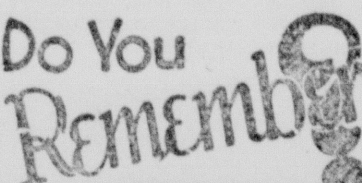 Do You
Remember